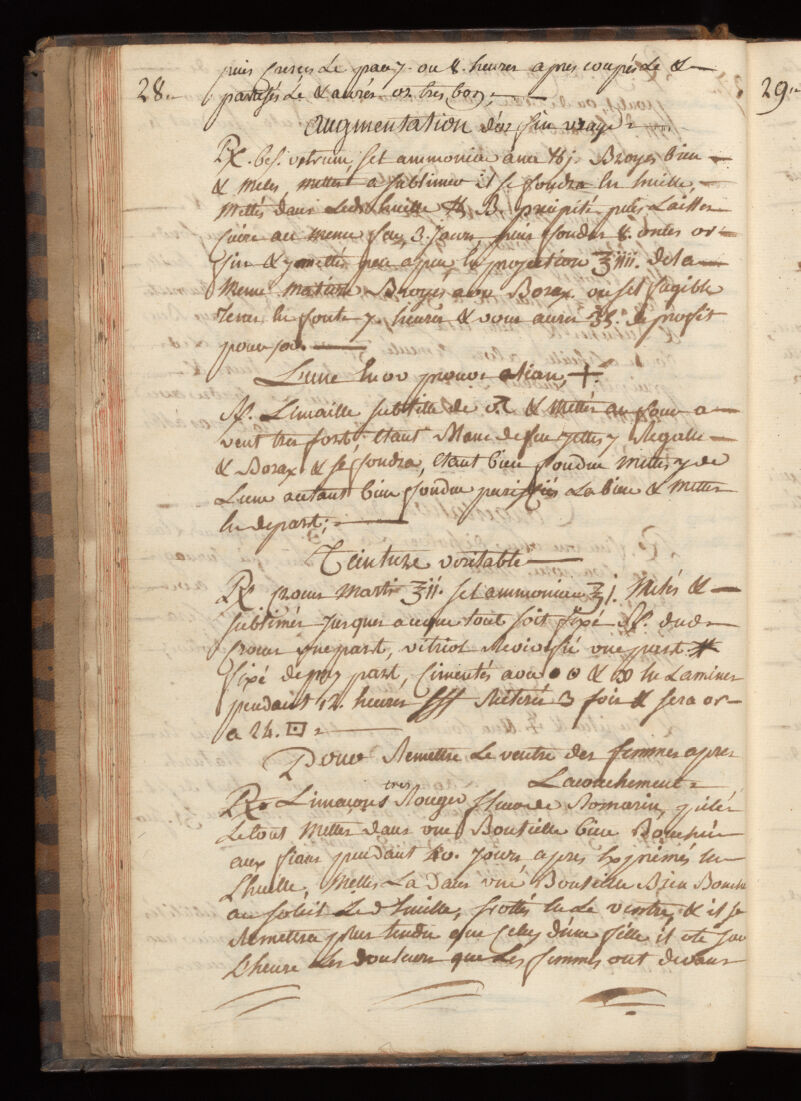 28.
puis Creusés Le pan 7. ou 8. heures apres coupés Le &
partagés Le & aurés or tres bon;
augmentation d'or fin vraye
Rx. vitrum, sel ammoniac ana ℔j. Broyes bien
& meles, mettes a sublimer il se fondra en huille,
Mettés dans Led. huille precipité puis Laisser
Cuire au meme feu 3. Jours, puis fondes 8. onces or
fin & y mettés peu a peu en projection ʒiiii. de la
meme matiere Broyés avec Borax ou sel fusible
tenes en fonte 7. heures & vous aurés de profit
pour jour.
Lune en or prouvé
Limaille subtille de & Mettés au four a
vent tres fort, etant Blanc de feu jettes y Regalle
& Borax & se fondra, etant bien fondue mettes y de
Lune autant bien fondue puis La bien & Mettes
en depart;
Teinture veritable
Rx. crocus martis ʒii. sel ammoniac ʒj. Melés &
sublimés jusques a ce que tout soit fixé dud.
crocus une part, vitriol Revivifié une part
fixé demy part, Cimentés avec & en Lamines
pendant 12. heures Reiterés 3 fois & sera or
a 24.
Pour Remettre Le ventre des femmes apres
Lacouchement
Rx. Limaçons tres Rouges fleur de Romarin, pilés
Le tout Mettes dans une Bouteille bien Bouchée
aux fians pendant 40. Jours apres Exprimés en
Lhuille, Mettes La dans une Bouteille Bien Bouché
au soleil Led. huille, frottés en Le ventre, & il se
Remettra plus tendu que Celuy d'une fille il ote sur
L'heure Les douleurs que Les femmes ont devant
29.